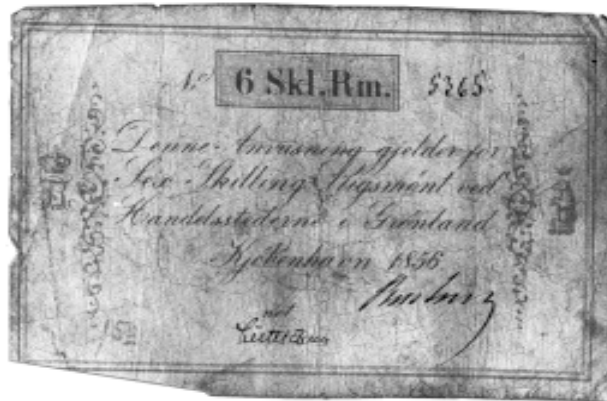 No 6 Skl. Rm. 5365
Denne Anviisning gjelder for
Sex Skilling Rigsmønt ved
Handelsstederne i Grønland
Kjøbenhavn 1856
not